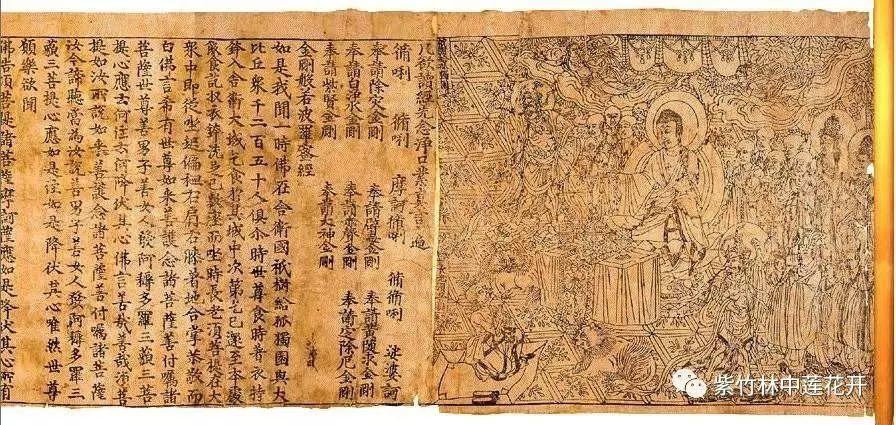 凡欲讀經先念淨口業真言一遍
脩唎 脩唎 摩訶脩唎 脩脩唎 娑婆訶
奉請除灾金剛 奉請辟毒金剛 奉請黃随求金剛
奉請白淨水金剛 奉請赤聲金剛 奉請定除厄金剛
奉請紫賢金剛 奉請大神金剛
金剛般若波羅蜜經
如是我聞一時佛在舍衛國祇樹給孤獨園與大
比丘衆千二百五十人俱尒時世尊食時著衣持
鉢入舍衛大城乞食於其城中次第乞已還至本處
飯食訖收衣鉢洗足已敷座而坐時長老須菩提在大
衆中即從座起偏袒右肩右膝著地合掌恭敬而
白佛言希有世尊如来善護念諸菩薩善付嘱諸
菩薩世尊善男子善女人發阿耨多羅三藐三菩
提心應云何住云何降伏其心佛言善哉善哉須菩
提如汝所說如来善護念諸菩薩善付嘱諸菩薩
汝今諦聽當為汝說善男子善女人發阿耨多羅三
藐三菩提心應如是住如是降伏其心唯然世尊
願樂欲聞
佛告須菩提諸菩薩摩訶薩應如是降伏其心所有
紫竹林中莲花开